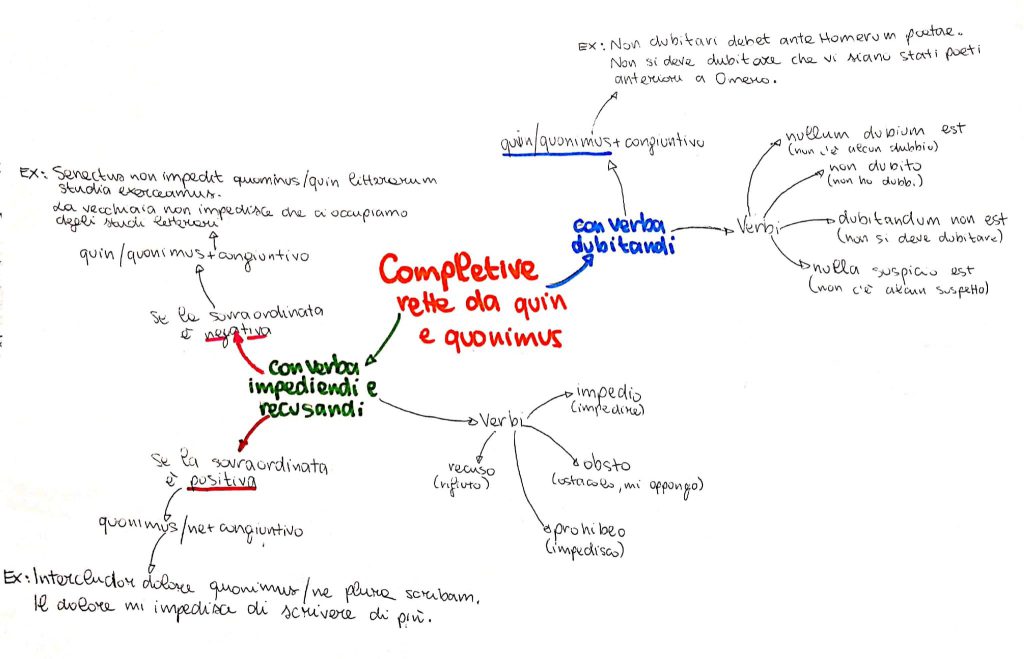 Completive
rette da quin
e quonimus
con verba
dubitandi
quin/quonimus+congiuntivo
Ex: Non dubitari debet ante Homerum poetae.
Non si deve dubitare che vi siano stati poeti
anteriori a Omero.
Verbi
nullum dubium est
(non c'è alcun dubbio)
non dubito
(non ho dubbi)
dubitandum non est
(non si deve dubitare)
nulla suspicio est
(non c'è alcun suspetto)
con verba
impediendi e
recusandi
se la sovraordinata
è negativa
quin/quonimus+congiuntivo
Ex: Senectus non impedit quominus/quin litterarum
studia exerceamus.
La vecchiaia non impedisce che ci occupiamo
degli studi letterari
se la sovraordinata
è positiva
quonimus/ne+congiuntivo
Ex: Intercludor dolore quonimus/ne plura scribam.
Il dolore mi impedisce di scrivere di più.
Verbi
impedio
(impedire)
recuso
(rifiuto)
obsto
(ostacolo, mi oppongo)
prohibeo
(impedisco)